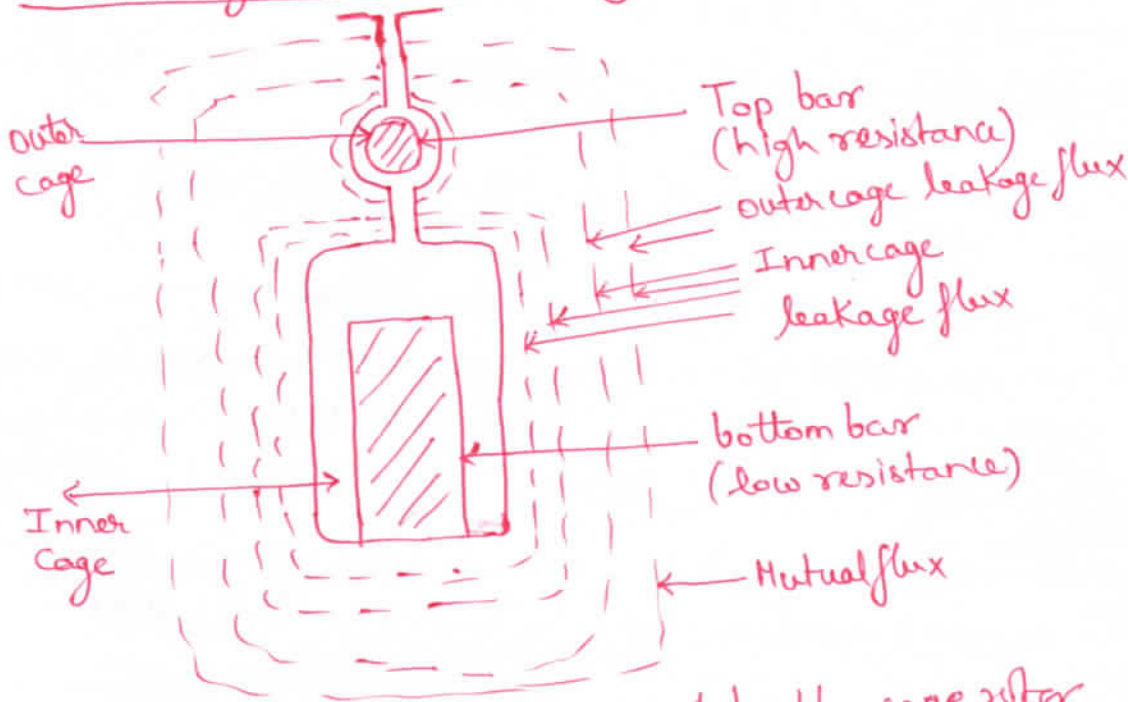 outer
cage
Top bar
(high resistance)
outer cage leakage flux
Inner cage
leakage flux
bottom bar
(low resistance)
Inner
Cage
Mutual flux